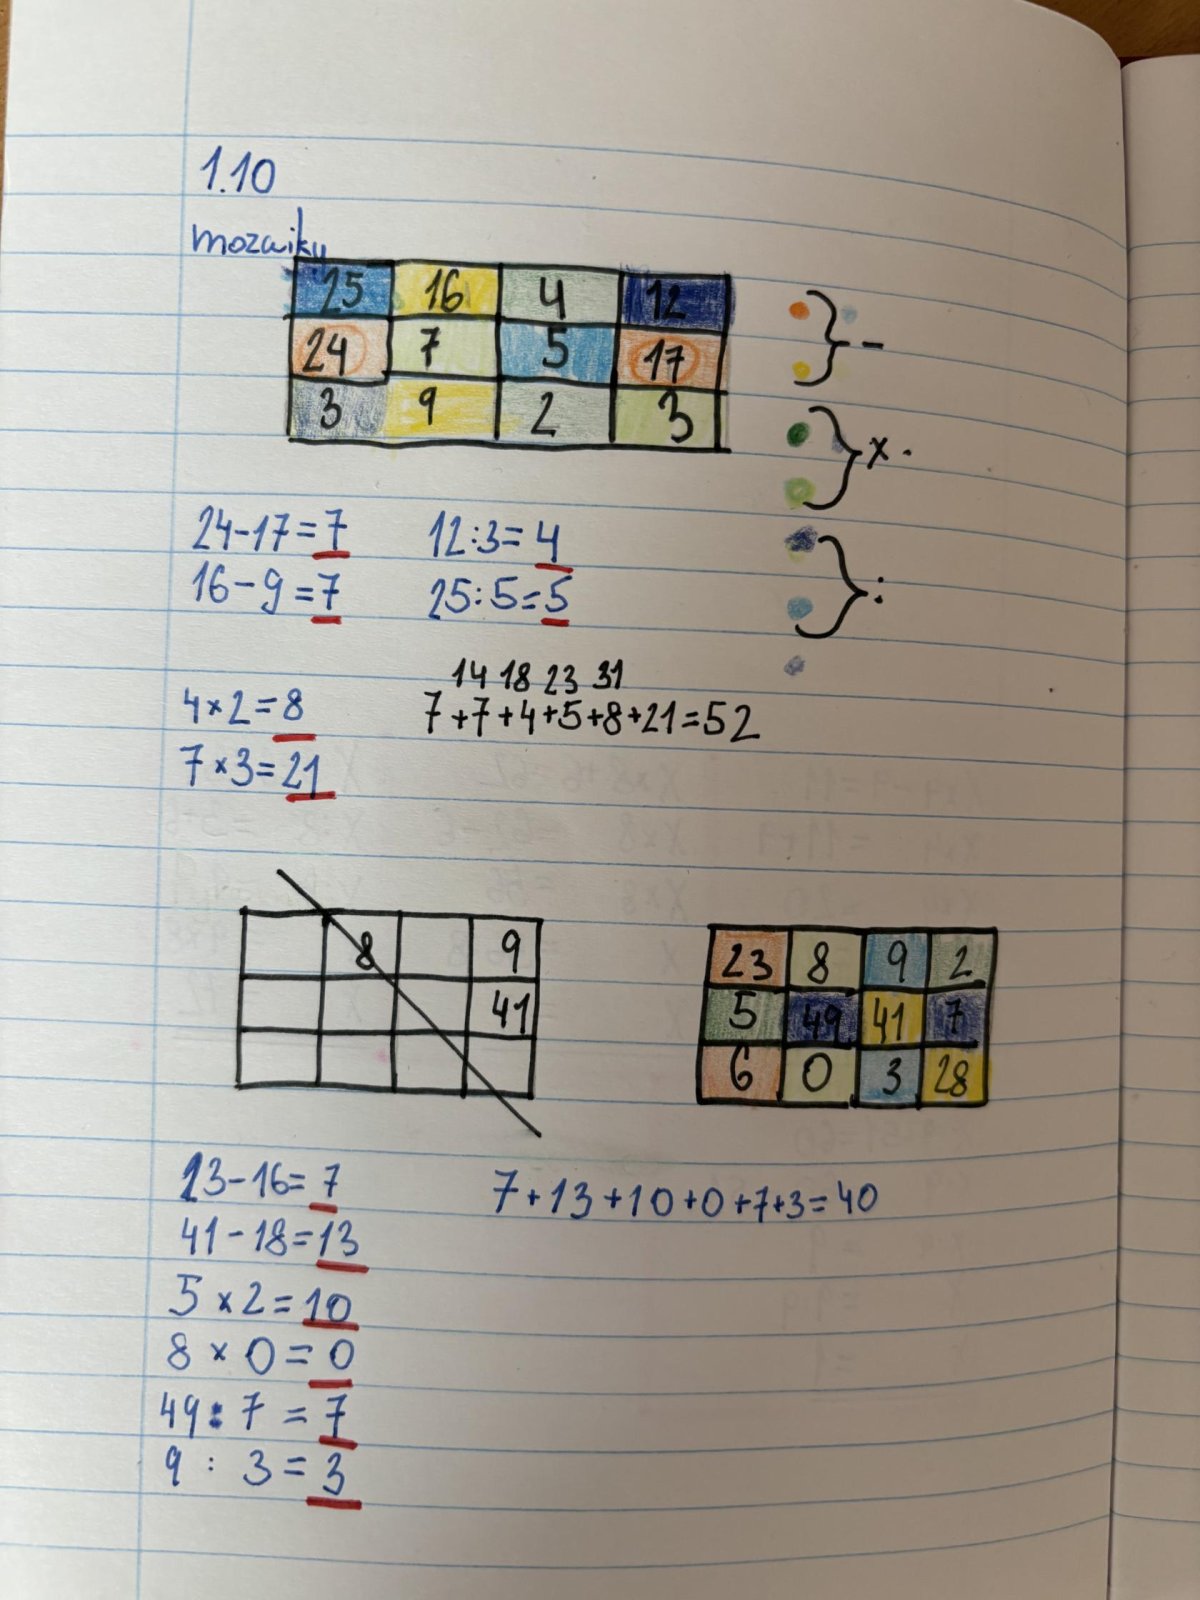 1.10
mozaiky
25 16 4 12
24 7 5 17
3 9 2 3
-
x .
:
24-17=7 12:3=4
16-9=7 25:5=5
14 18 23 31
4×2=8 7+7+4+5+8+21=52
7×3=21
8 9
41
23 8 9 2
5 49 41 7
6 0 3 28
23-16=7 7+13+10+0+7+3=40
41-18=13
5×2=10
8×0=0
49:7=7
9:3=3